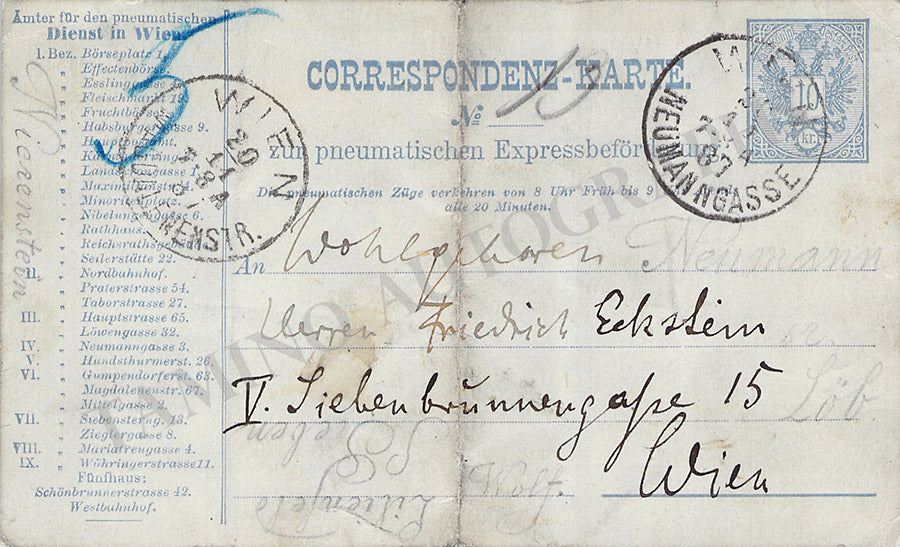 Ämter für den pneumatischen
Dienst in Wien
I. Bez. Börseplatz 1
Effectenbörse
Esslinggasse
Fleischmarkt 19
Fruchtbörse
Habsburgergasse 9.
Hauptpostamt.
Landskrongasse 1.
Maximilianstr. 4.
Minoritenplatz.
Nibelungengasse 6.
Rathhaus.
Reichsrathsgebäude
Seilerstätte 22.
II. Nordbahnhof.
Praterstrasse 54.
Taborstrasse 27.
III. Hauptstrasse 65.
Löwengasse 32.
IV. Neumanngasse 3.
V. Hundsthurmerst. 26.
VI. Gumpendorferst. 63.
Magdalenenstr. 67.
Mittelgasse 2.
VII. Siebensterng. 13.
Zieglergasse 8.
VIII. Mariatreugasse 4.
IX. Währingerstrasse 11.
Fünfhaus:
Schönbrunnerstrasse 42.
Westbahnhof.
CORRESPONDENZ-KARTE.
No.
zur pneumatischen Expressbeförderung
Die pneumatischen Züge verkehren von 8 Uhr Früh bis 9
alle 20 Minuten.
An Wohlgeboren Neumann
Herren Friedrich Eckstein
V. Siebenbrunnengaße 15 Löb
Wien
Lieben
Lilienfeld
WIEN
20
WIEN
NEUMANNGASSE
10
kr.
TAMINO AUTOGRAPHS